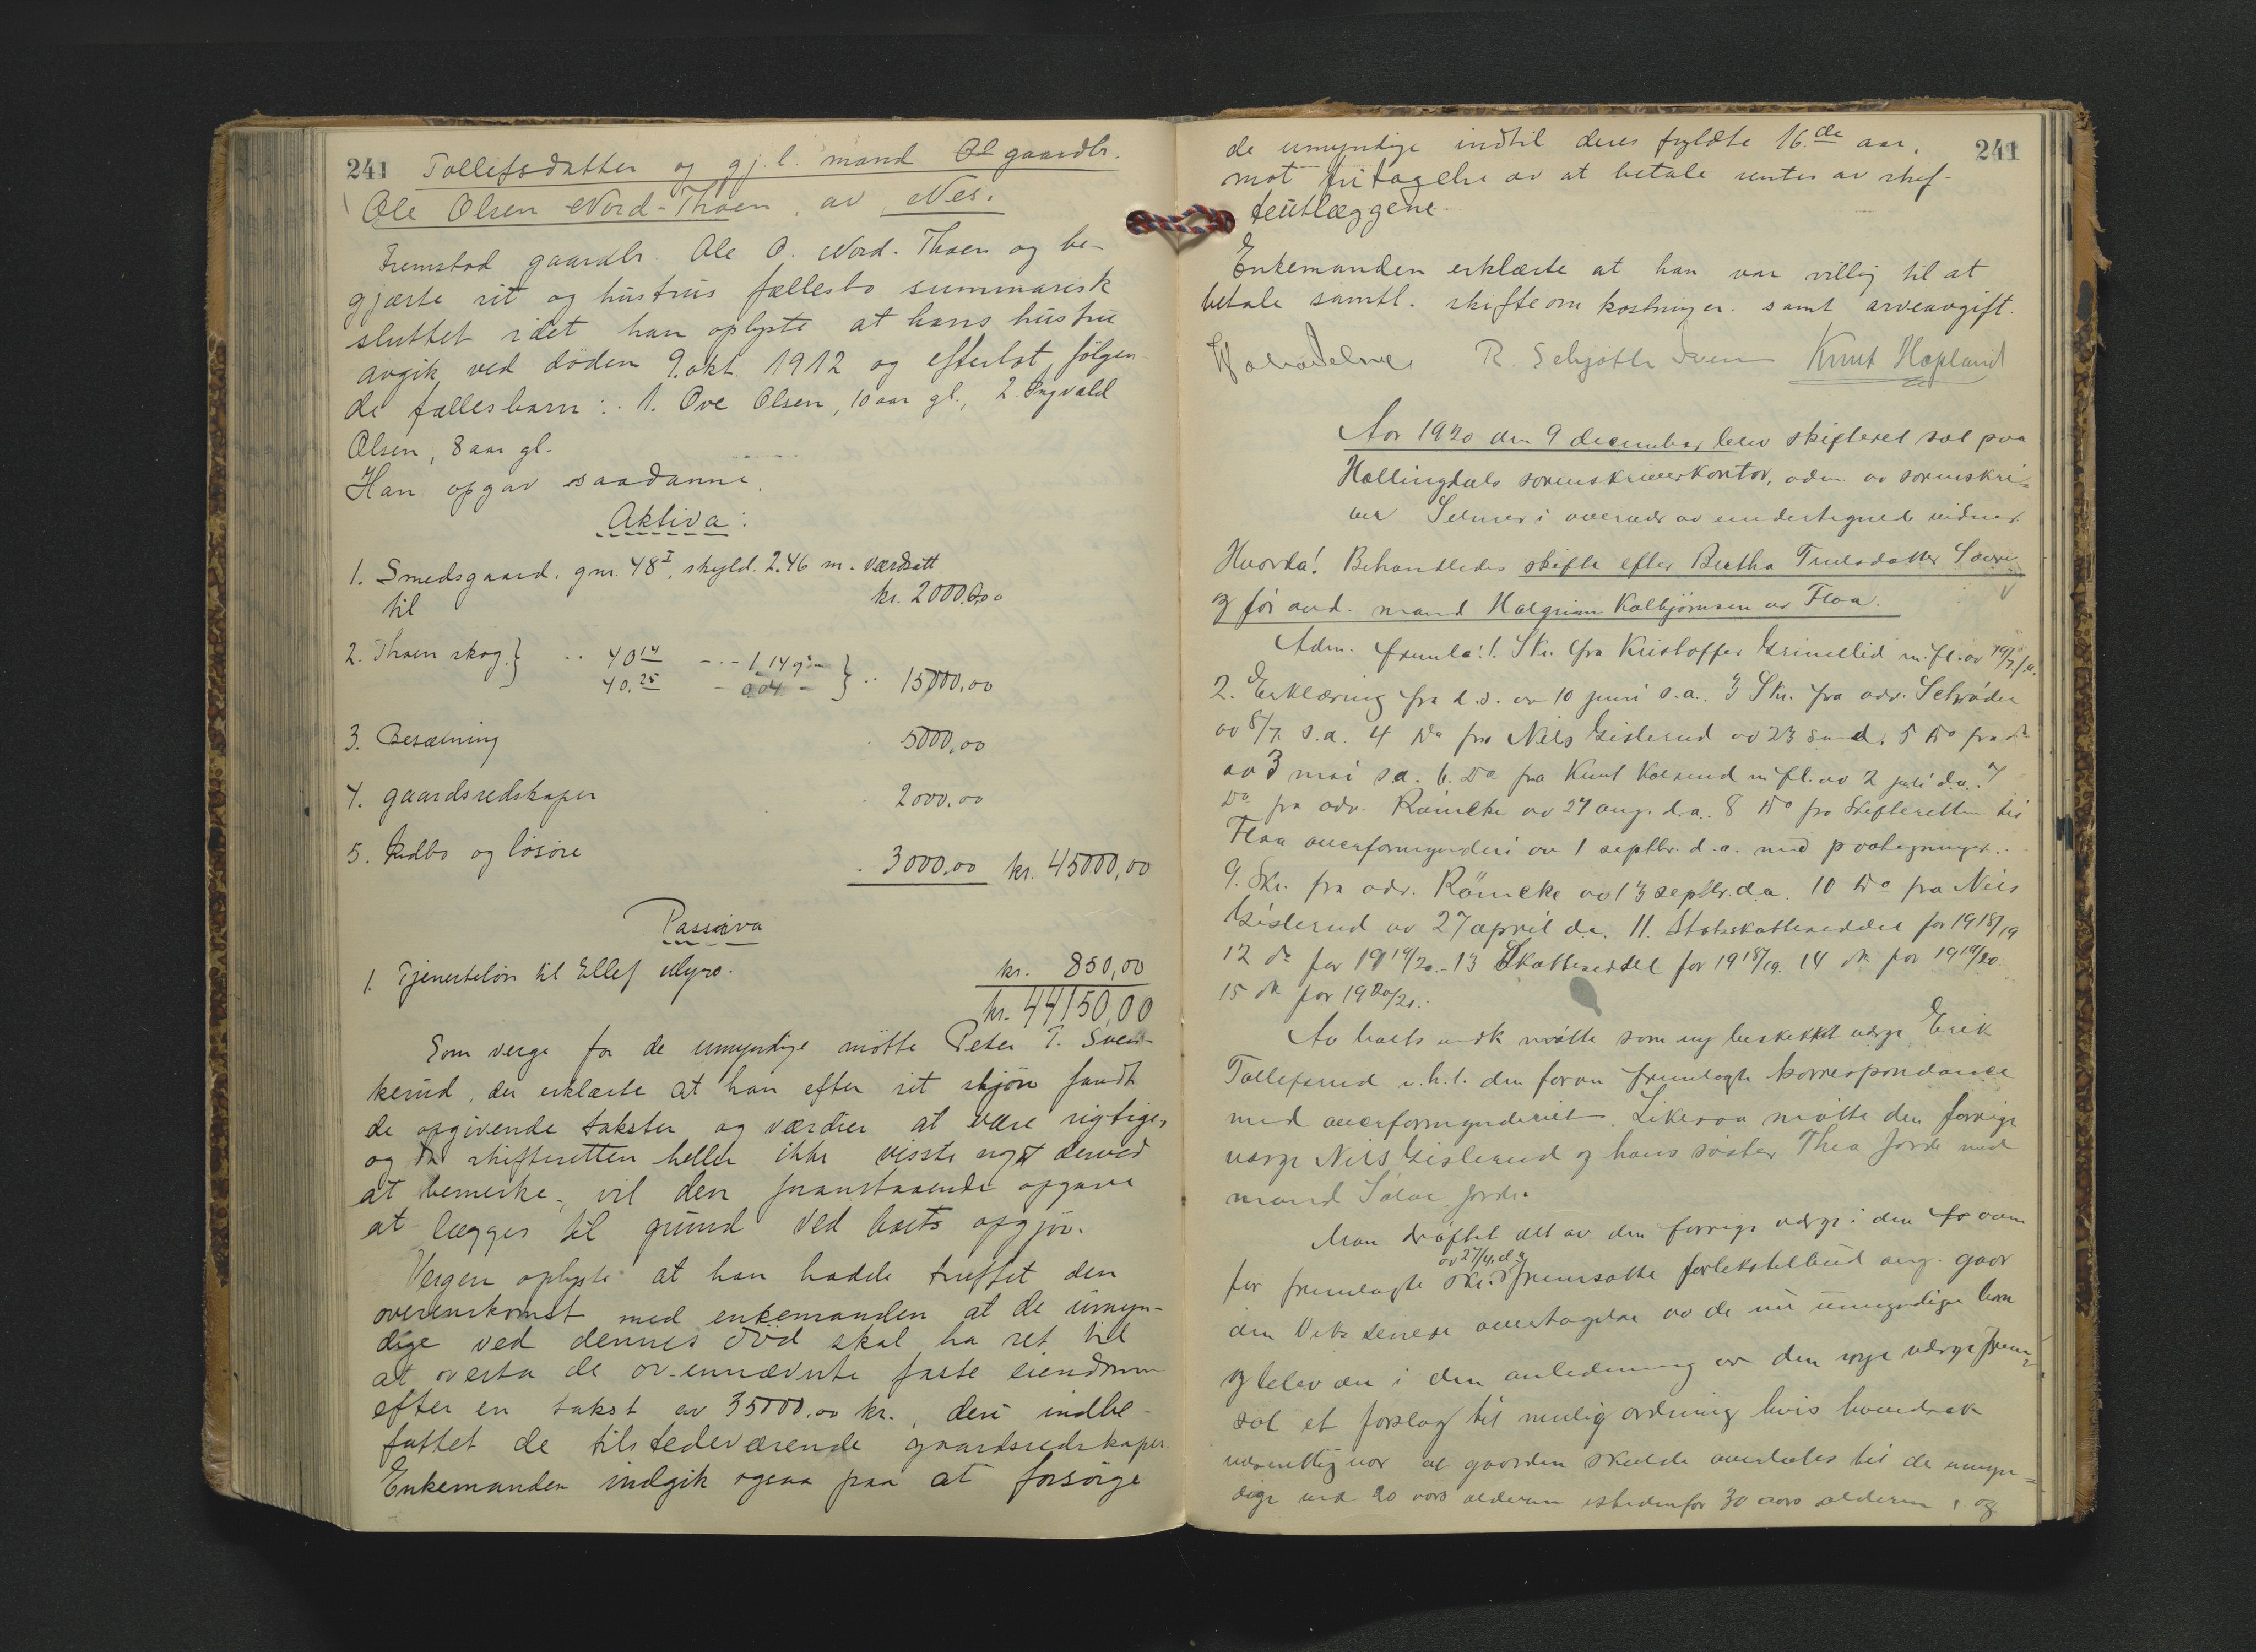 241 Tollefsdatter og gj. l. mand gaardbr.
Ole Olsen Nord-Thoen, av Nes.
Fremstod gaardbr. Ole O. Nord-Thoen og be-
gjærte sit og hustrus fællesbo summarisk
sluttet idet han oplyste at hans hustru
avgik ved døden 9. okt. 1912 og efterlot følgen-
de fællesbarn: 1. Ove Olsen, 10 aar gl., 2. Ingvald
Olsen, 8 aar gl.
Han opgav saadanne
Aktiva:
1. Smedsgaard, gnr. 48 I, skyld. 2.46 m. værdsatt
til kr. 20000,00
2. Thoen skog } 40 14 1,14
40. 25 - 0.04 - } 15000,00
3. Besætning 5000,00
4. gaardsredskaper 2000,00
5. Indbo og løsøre 3000,00 kr. 45000,00
Passiva
1. Tjenesteløn til Ellef kr. 850,00
kr. 44150,00
Som verge for de umyndige møtte Peter T. Sven-
kerud, der erklærte at han efter sit skjøn fandt
de opgivende takster og værdier at være rigtige,
og da skifteretten heller ikke visste noget derved
at bemerke, vil den foranstaaende opgave
at lægges til grund ved boets opgjør.
Vergen oplyste at han hadde truffet den
overenskomst med enkemanden at de umyn-
dige ved dennes død skal ha ret til
at overta de ovennævnte faste eiendomme
efter en takst av 35000,00 kr., deri indbe-
fattet de tilstedeværende gaardsredskaper.
Enkemanden indgik ogsaa paa at forsørge
241
de umyndige indtil deres fyldte 16.de aar,
mot fritagelse av at betale renter av skif-
teutlæggene.
Enkemanden erklærte at han var villig til at
betale samtl. skifteomkostninger samt arveavgift.
R. Schjøtt Iversen Knut Hopland
Aar 1920 den 9 december blev skifteret sat paa
Hallingdals sorenskriverkontor, adm. av sorenskri-
ver Selmer i overvær av undertegnede vidner.
Hvorda! Behandledes skifte efter Bertha Trulsdatter
og før avd. mand Halgrim Kolbjørnsen av Flaa.
Adm. fremla: 1. Skr. fra Kristoffer Grimelid m. fl. av
2. Erklæring fra d. s. av 10 juni s.a. 3 Skr. fra adv. Schrøder
av 8/7. s.a. 4 Do fra Nils Gislerud av 23 s.m. 5 Do fra do
av 3 mai s.a. 6. Do fra Knut Kolsrud m fl. av 2 juli d.a. 7
Do fra adv. Römcke av 27 aug. d.a. 8 Do fra Skifteretten til
Flaa overformynderi av 1 septbr. d.a. med paategninger.
9. Skr. fra adv. Römcke av 13 septbr. d.a. 10 Do fra Nils
Gislerud av 27 april d.a. 11. Statsskatteseddel for 1918/19
12 do for 1919/20. 13 Skatteseddel for 1918/19. 14 do for 1919/20.
15 do for 1920/21.
Av boets møtte som ny beskikket verge Erik
Tollefsrud i.h.t. den foran fremlagte korrespondance
med overformynderiet. Likesaa møtte den forrige
verge Nils Gislerud og hans søster Thea Jorde med
mand Jorde.
Man drøftet det av den forrige verge i den
før fremlagte skr. av 27/4 d.a. fremsatte forlikstilbud ang. gaar
den senere overtagelse av de nu umyndige barn
og blev der i den anledning av den nye verge frem-
sat et forslag til mulig ordning hvis
væsentlig var at gaarden skulde overlates til de umyn-
dige ved 20 aars alderen istedenfor 30 aars alderen, og